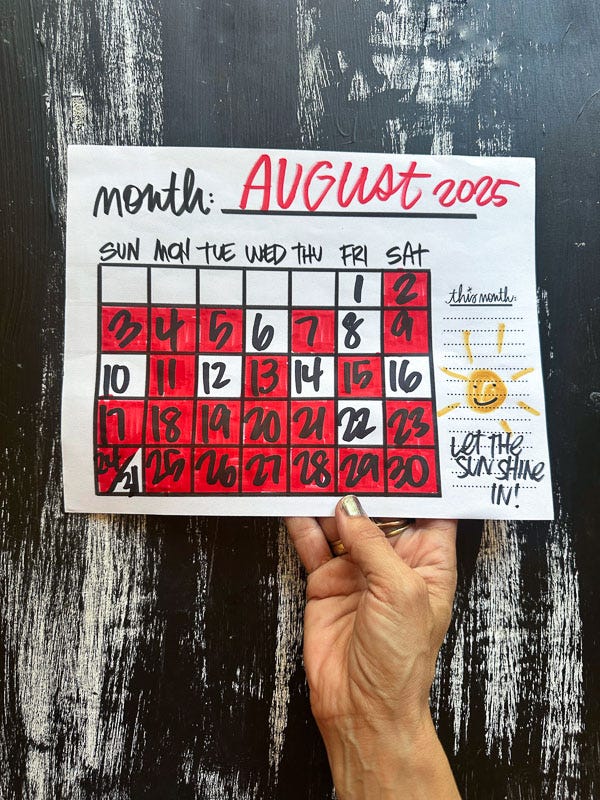 month: AUGUST 2025
SUN MON TUE WED THU FRI SAT
1 2
3 4 5 6 7 8 9
10 11 12 13 14 15 16
17 18 19 20 21 22 23
24/31 25 26 27 28 29 30
this month:
LET THE
SUNSHINE
IN!